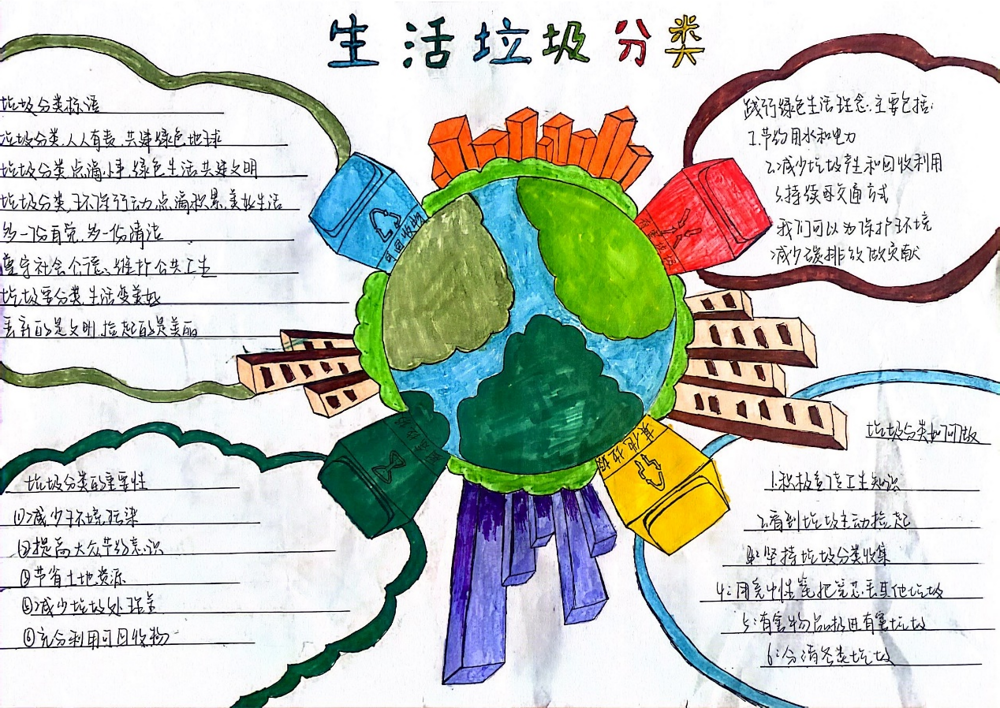 生活垃圾分类
垃圾分类标语
垃圾分类,人人有责,共建绿色地球
垃圾分类点滴事,绿色生活共建文明
垃圾分类,环保行动,点滴积累,美好生活
多一份自觉,多一份清洁
遵守社会公德、维护公共卫生
垃圾零分类,生活变美好
丢弃的是文明,捡起的是美丽
践行绿色生活理念,主要包括:
1.节约用水和电力
2.减少垃圾产生和回收利用
3.持续用交通方式
我们可以为保护环境
减少碳排放做贡献
可回收物
其他垃圾
垃圾分类的重要性
①减少环境污染
②提高大众节约意识
③节省土地资源
④减少垃圾处理量
⑤充分利用可回收物
垃圾分类如何做
1.积极宣传卫生知识
2.看到垃圾主动捡起
坚持垃圾分类收集
4:用完中性笔把笔芯丢其他垃圾
5:有害物品扔进有害垃圾
6:分清各类垃圾